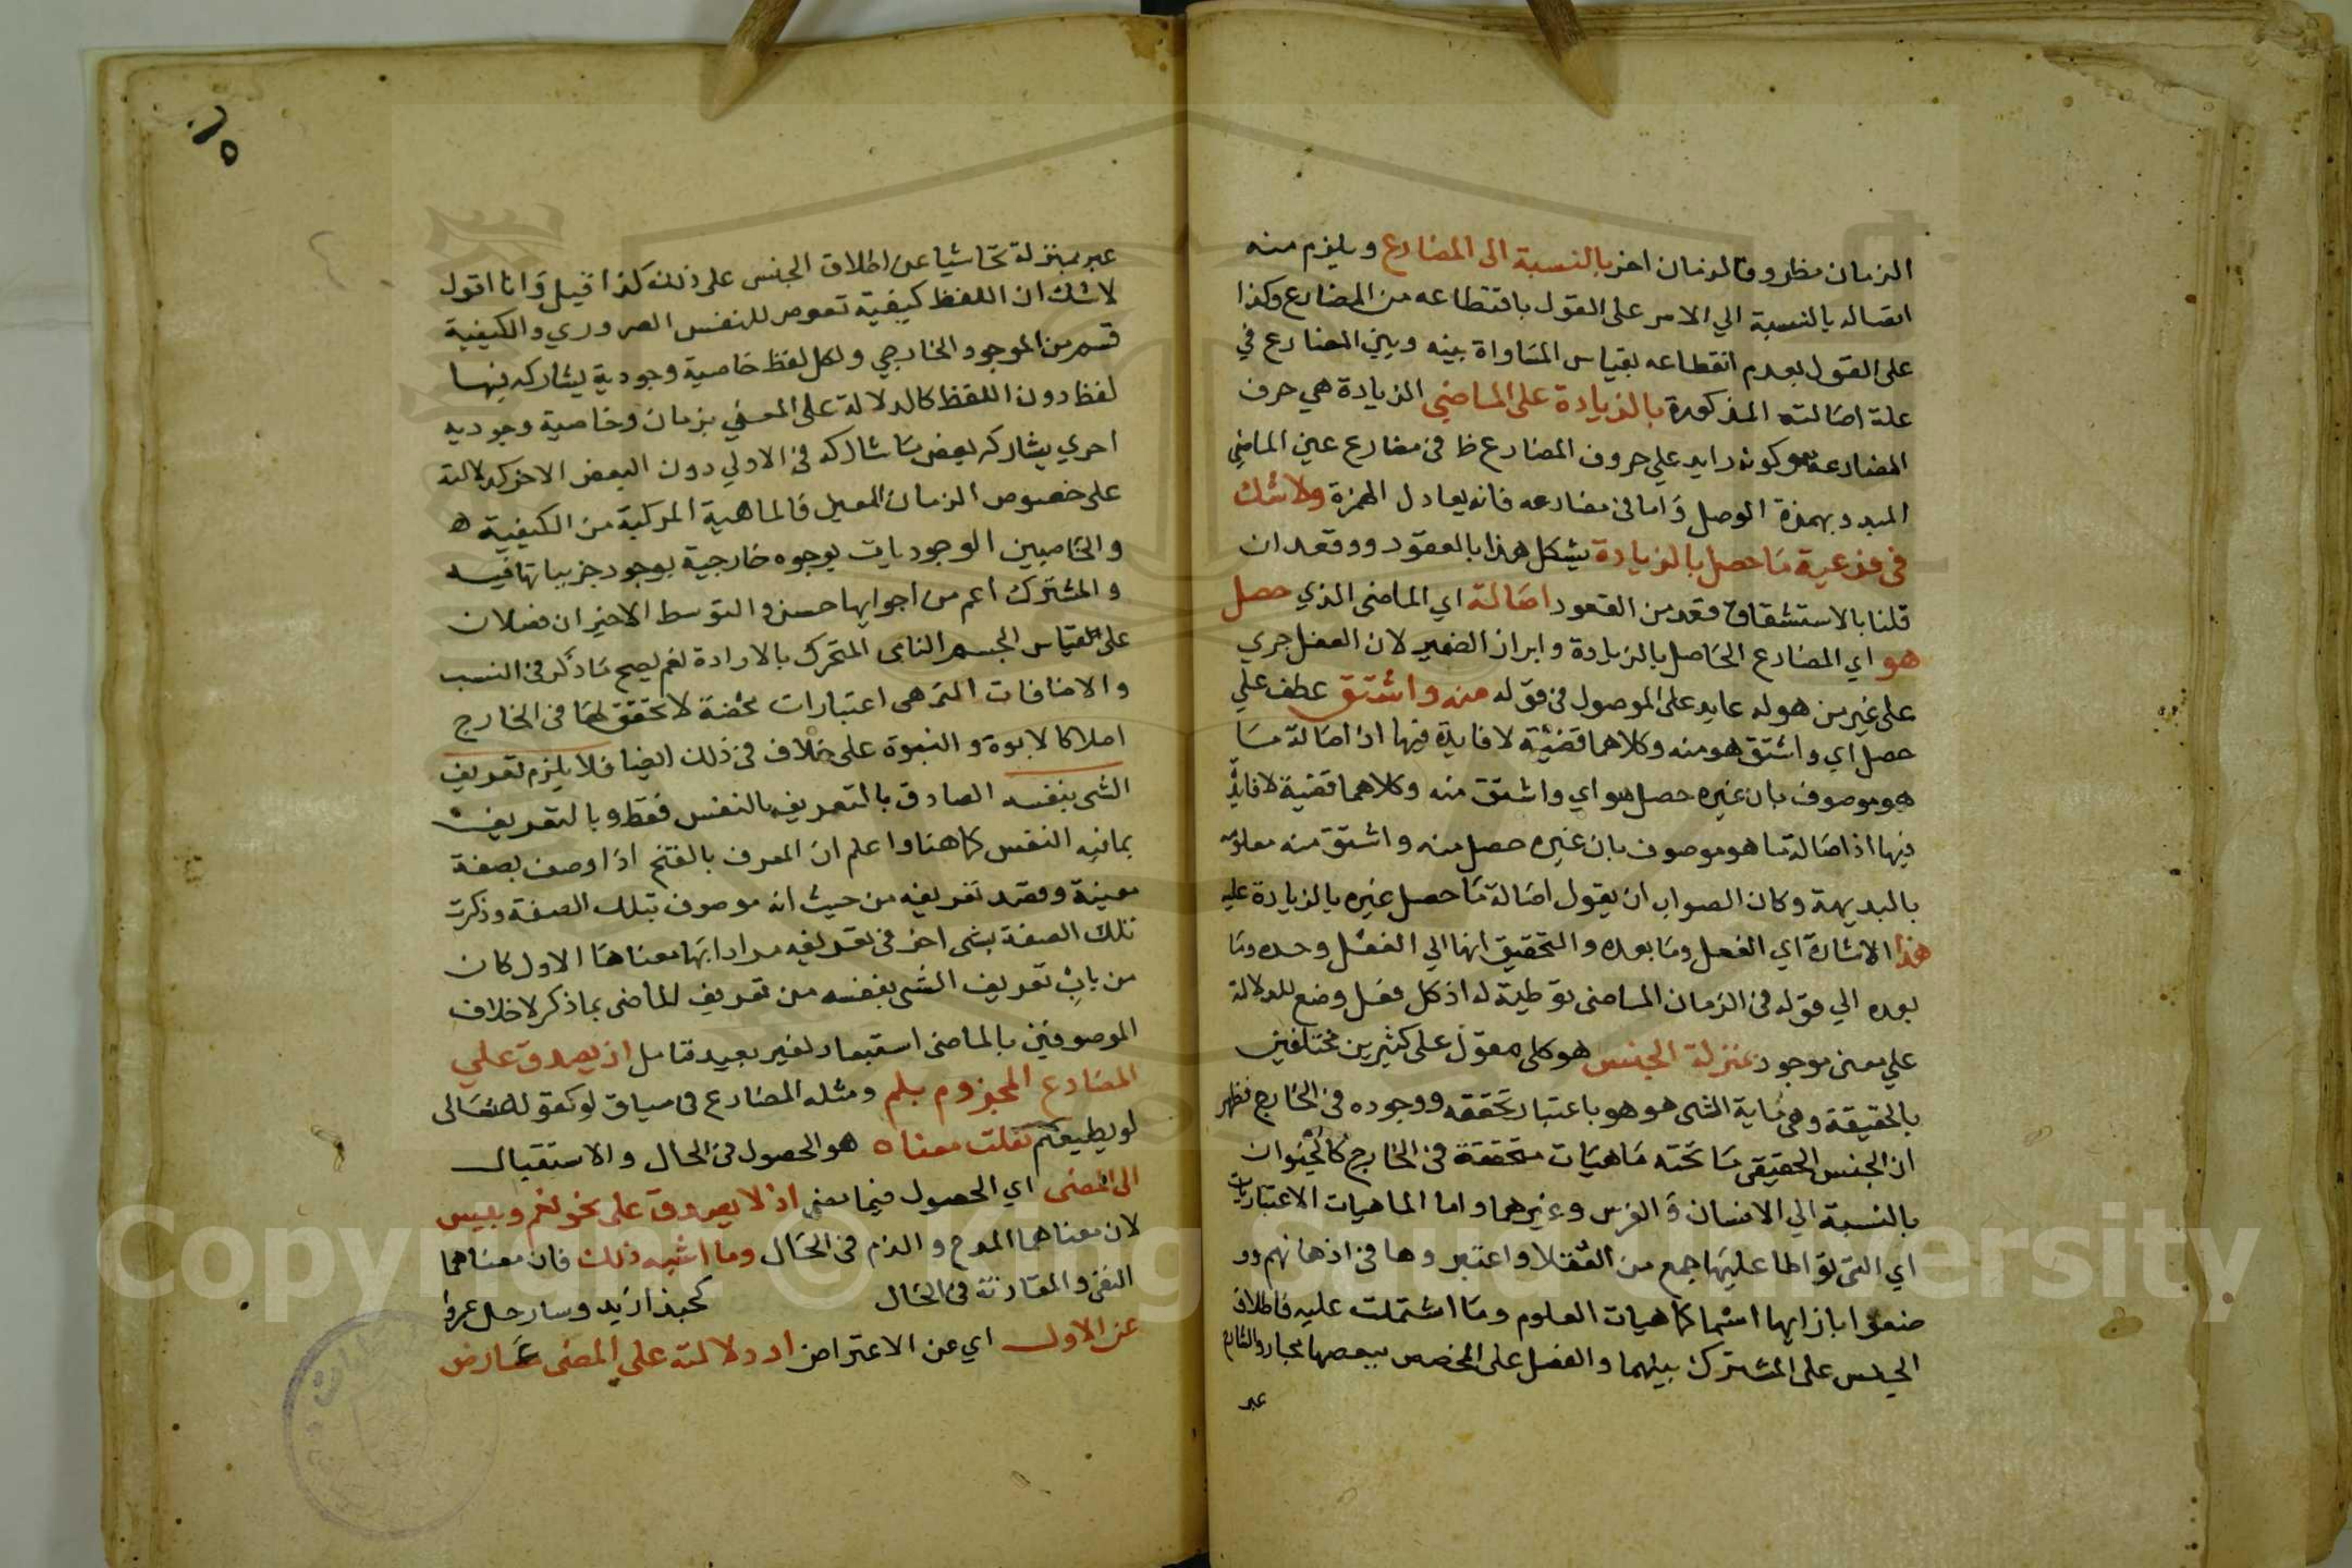 الزمان مظروفا لزمان اخر بالنسبة الى المضارع ويلزم منه
اتصاله بالنسبة الي الامر على القول باقتطاعه من المضارع وكذا
على القول بعدم اقتطاعه بقياس المساواة بينه وبين المضارع في
علة اصالته المذكورة بالزيادة على الماضي الزيادة هي حرف
المضارعة وكونه زايد علي حروف المضارع ظا في مضارع عين الماضي
المبدو بهمزة الوصل واما في مضارعه فانه يعادل الهمزة ولا شك
في فرعية ما حصل بالزيادة يشكل هذا بالعقود ووقعد ان
قلنا بالاستشقاق قعد من القعود اصالة اي الماضي الذي حصل
هو اي المضارع الحاصل بالزيادة وابراز الضمير لان الفعل جري
على غير من هوله عايد على الموصول في قوله منه واشتق عطف علي
حصل اي واشتق هو منه وكلاهما قضية لا فايدة فيها اذ اصالة ما
هو موصوف بان غيره حصل هو اي واشتق منه وكلاهما قضية لا فايدة
فيها اذ اصالة ما هو موصوف بان غيره حصل منه واشتق منه معلومة
بالبديهة وكان الصواب ان يقول اصالة ما حصل غيره بالزيادة عليه
هذا الاشارة اي الفعل وما بعده والتحقيق انها الي الفعل وحده وما
بعده الي قوله في الزمان الماضي توطية له اذ كل فعل وضع للدلالة
علي معنى موجود بمنزلة الجنس هو كلى مقول على كثيرين مختلفين
بالحقيقة وهي ماية الشى هو هو باعتبار تحققه ووجوده في الخارج فظهر
ان الجنس الحقيقي ما تحته ماهيات متحققة في الخارج كالحيوان
بالنسبة الي الانسان والفرس وغيرهما واما الماهيات الاعتباريات
اي التى تواطا عليها جمع من العقلا واعتبروها في اذهانهم وو
ضعوا بازايها اسما كماهيات العلوم وما اشتملت عليه فاطلاق
الجنس على المشترك بينهما والفصل على المخصص ببعضها مجاز والشارح
عبر
عبر بمنزلة تحاشيا عن اطلاق الجنس على ذلك كذا قيل وانا اقول
لا شك ان اللفظ كيفية تعرض للنفس الضروري والكيفية
قسم من الموجود الخارجي ولكل لفظ خاصية وجودية يشاركه فيها
لفظ دون اللفظ كالدلالة على المعنى بزمان وخاصية وجوديه
اخري يشاركه بعض ما شاركه في الاولي دون البعض الاخر كدلالته
على خصوص الزمان المعين فالماهية المركبة من الكيفية
والخاصيين الوجوديات بوجوه خارجية بوجود جزيياتها فيه
والمشترك اعم من اجوايها حسن والتوسط الاخيران فضلان
على قياس الجسم النامى المتحرك بالارادة نعم يصح ما ذكر في النسب
والاضافات التى هى اعتبارات محضة لا تحقق لها في الخارج
اصلا كالابوة والنبوة على خلاف في ذلك ايضا فلا يلزم تعريف
الشى بنفسه الصادق بالتعريف بالنفس فقط وبالتعريف
بمافيه النفس كما هنا واعلم ان المعرف بالفتح اذا وصف بصفة
معينة وقصد تعريفه من حيث انه موصوف بتلك الصفة وذكرت
تلك الصفة بشى اخر في تعريفه مرادا بها معناها الاول كان
من باب تعريف الشى بنفسه من تعريف الماضى بما ذكر لاخلاف
الموصوفين بالماضى استبعاد لغير بعيد تامل اذ يصدق علي
المضارع المجزوم بلم ومثله المضارع في سياق لو كقوله تعالى
لو يطيعكم نقلت معناه هو الحصول في الحال والاستقبال
الى المضى اي الحصول فيما مضى اذ لا يصدق على نحو نعم وبيس
لان معناهما المدح والذم في الحال وما اشبه ذلك فان معناهما
النفي والمقارنة في الحال كحبذا زيد وسار حل عرفا
عن الاول اي عن الاعتراض اذ دلالته علي المضى عارض